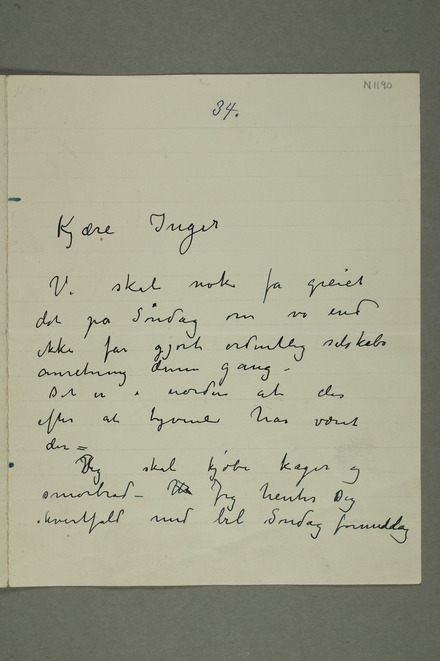 N 1190
34.
Kjære Inger
Vi skal nok få greiet
det på Søndag om vi end
ikke får gjort ordentlig selskabs
anretning denne gang –
Det er i orden at des
efter at tyvene har været
der =
Jeg skal kjøbe kager og
smørbrød – Jeg henter Dig
ihvertfald med bil Søndag formiddag